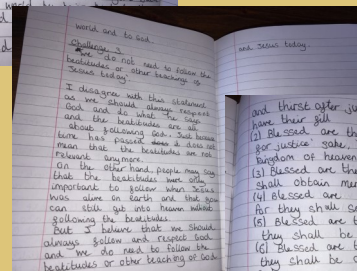 world and to God.
Challenge 3
"We do not need to follow the
beatitudes or other teachings of
Jesus today".
I disagree with this statement
as we should always respect
God and do what he says
and the beatitudes are all
about following God. Just because
time has passed does it does not
mean that the beatitudes are not
relevant anymore.
On the other hand, people may say
that the beatitudes were only
important to follow when Jesus
was alive on earth and that you
can still get into heaven without
following the beatitudes.
But I believe that we should
always follow and respect God
and we do need to follow the
beatitudes or other teaching of God
and Jesus today.
and thirst after ju
have their fill
(2) Blessed are th
for justice' sake,
kingdom of heaven
(3) Blessed are the
shall obtain me
(4) Blessed are
for they shall se
(5) Blessed are t
they shall be
(6) Blessed are t
they shall be